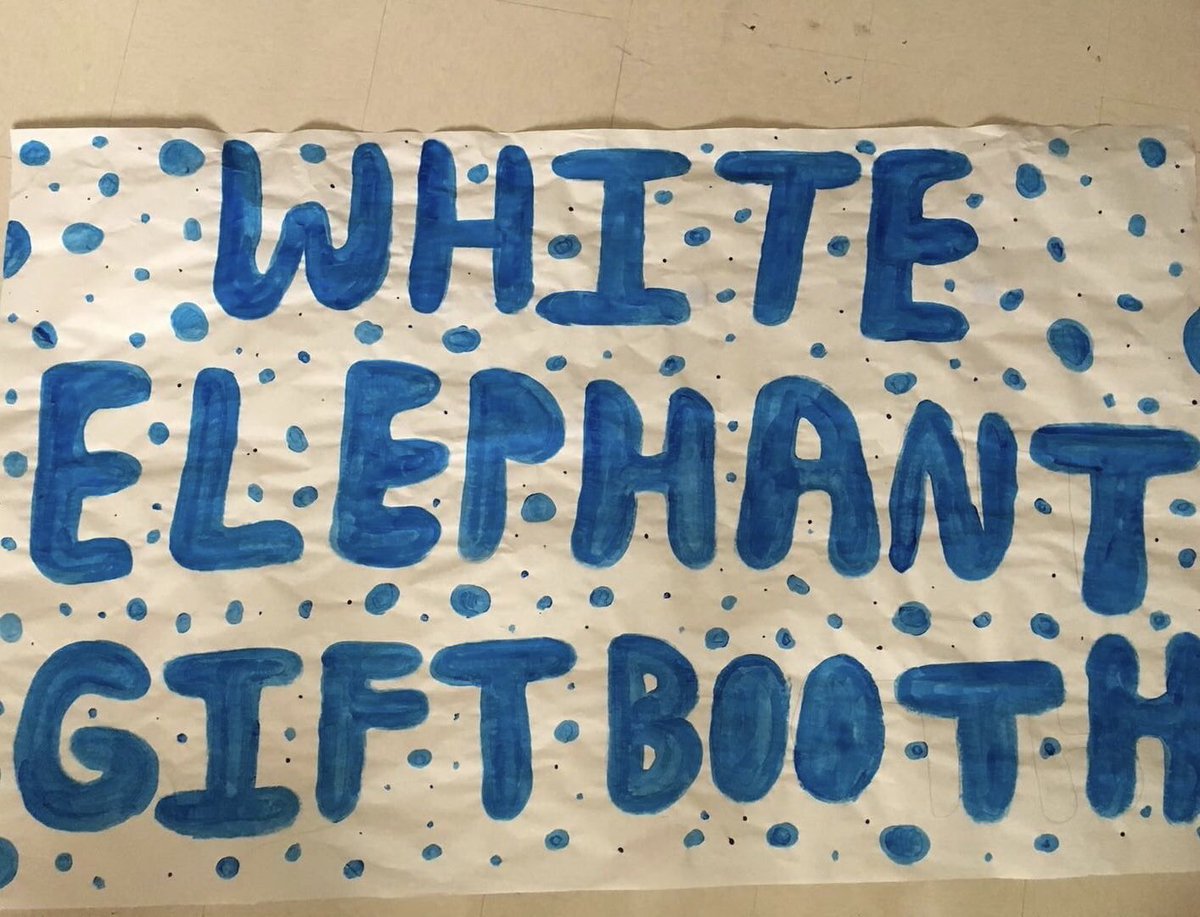 WHITE
ELEPHANT
GIFT BOOTH